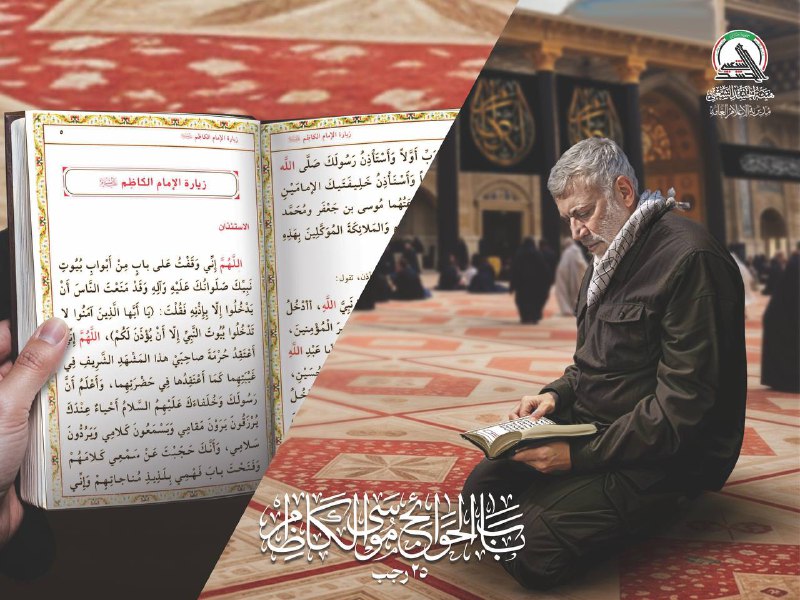 ٥
زيارة الإمام الكاظم
زيارة الإمام الكاظم
الاستئذان
اَللّٰهُمَّ إِنِّي وَقَفْتُ عَلى بابٍ مِنْ أَبْوابِ بُيُوتِ
نَبِيِّكَ صَلَواتُكَ عَلَيْهِ وَآلِهِ وَقَدْ مَنَعْتَ النَّاسَ أَنْ
يَدْخُلُوا إِلَّا بِإِذْنِهِ فَقُلْتَ: (يَا أَيُّها الَّذِينَ آمَنُوا لا
تَدْخُلُوا بُيُوتَ النَّبِيِّ إِلَّا أَنْ يُؤْذَنَ لَكُمْ)، اَللّٰهُمَّ إِنِّي
أَعْتَقِدُ حُرْمَةَ صاحِبَيْ هذا المَشْهَدِ الشَّرِيفِ فِي
غَيْبَتِهِما كَما أَعْتَقِدُها فِي حَضْرَتِهِما، وَأَعْلَمُ أَنَّ
رَسُولَكَ وَخُلَفاءَكَ عَلَيْهِمُ السَّلامُ أَحْياءٌ عِنْدَكَ
يُرْزَقُونَ يَرَوْنَ مَقامِي وَيَسْمَعُونَ كَلامِي وَيَرُدُّونَ
سَلامِي، وَأَنَّكَ حَجَبْتَ عَنْ سَمْعِي كَلامَهُمْ
وَفَتَحْتَ بابَ فَهْمِي بِلَذِيذِ مُناجاتِهِمْ وَإِنِّي
زيارة الإمام الكاظم
أَوَّلاً وَأَسْتَأْذِنُ رَسُولَكَ صَلَّى اللّٰه
وَأَسْتَأْذِنُ خَلِيفَتَيْكَ الإِمامَيْنِ
مُوسى بن جَعْفَر ومُحَمَّد
وَالمَلائِكَةَ المُوَكَّلِينَ بِهٰذِهِ
تقول:
اللّٰهِ، أَأَدْخُلُ
الْمُؤْمِنِينَ،
عَبْدِ اللّٰهِ
هيئة الحشد الشعبي
مديرية الإعلام العامة
باب الحوائج موسى الكاظم
٢٥ رجب